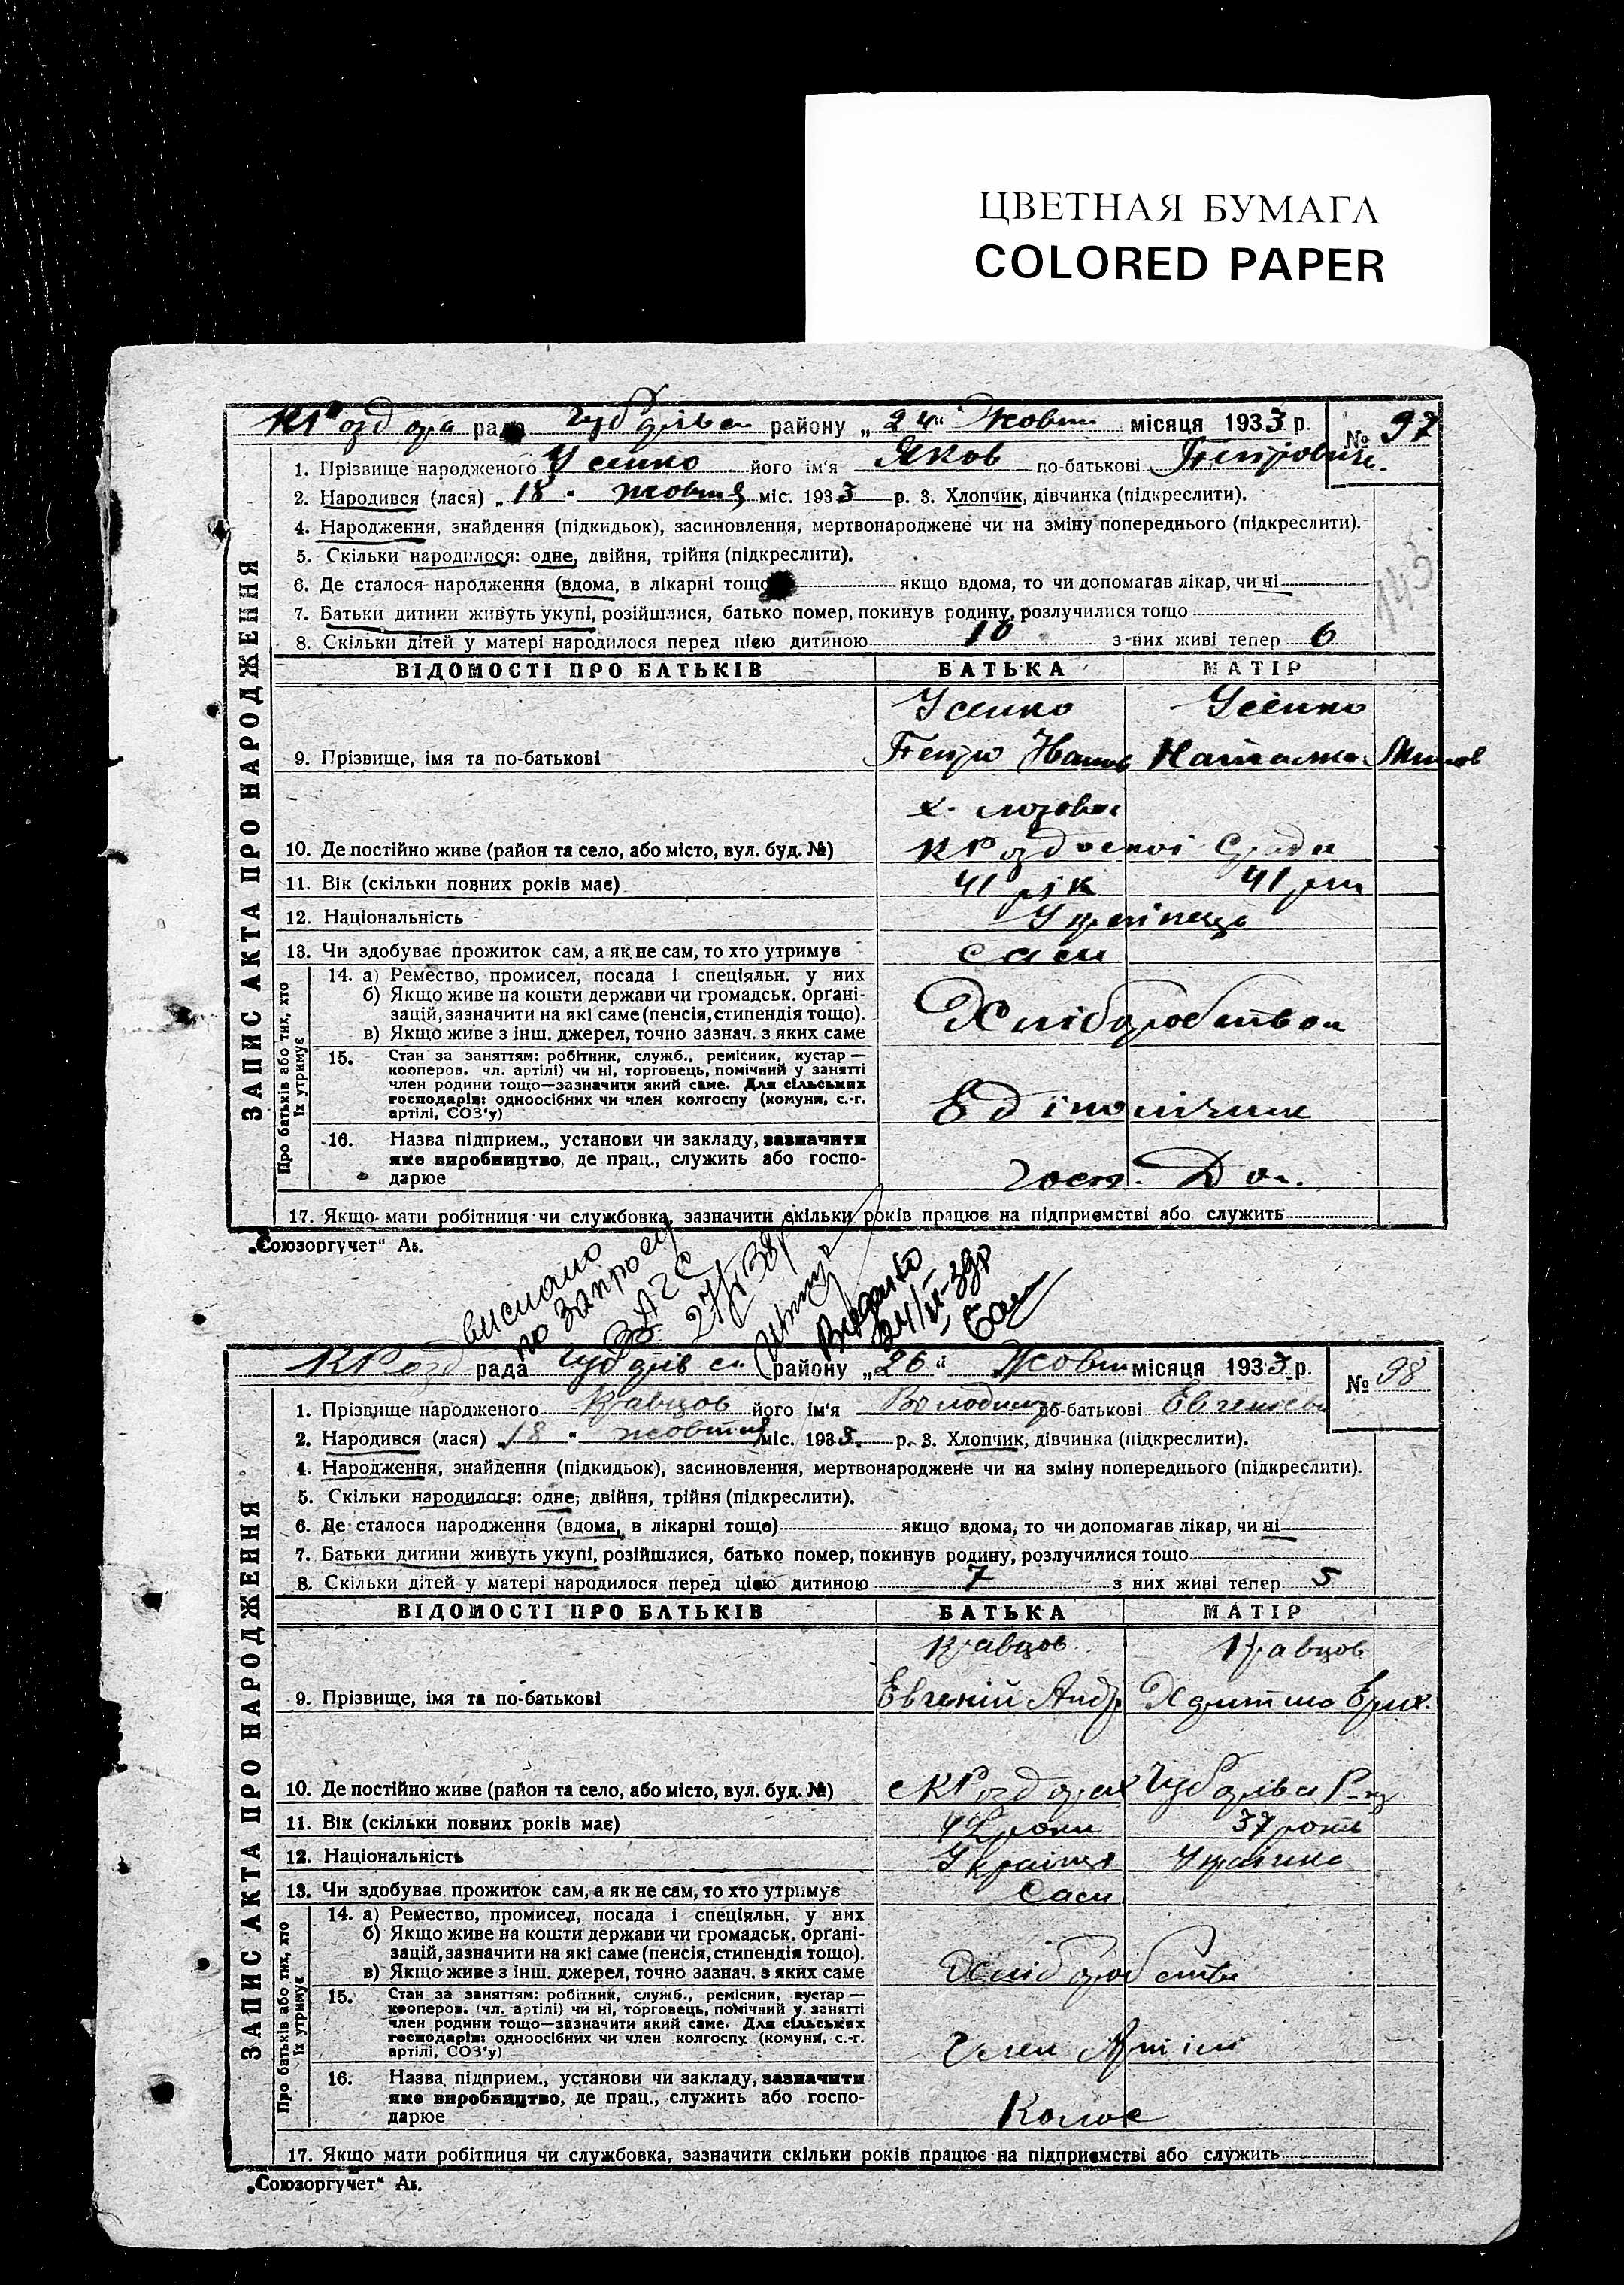 ЦВЕТНАЯ БУМАГА
COLORED PAPER
рада району „24“ Жовтн місяця 1933 р. № 97
1. Прізвище народженого Усенко його ім'я Яков по-батькові Петрович.
2. Народився (лася) „18“ жовтня міс. 1933 р. 3. Хлопчик, дівчинка (підкреслити).
4. Народження, знайдення (підкидьок), засиновлення, мертвонароджене чи на зміну попереднього (підкреслити).
5. Скільки народилося: одне, двійня, трійня (підкреслити).
6. Де сталося народження (вдома, в лікарні тощо якщо вдома, то чи допомагав лікар, чи ні
7. Батьки дитини живуть укупі, розійшлися, батько помер, покинув родину, розлучилися тощо
143
8. Скільки дітей у матері народилося перед цією дитиною 10 з них живі тепер 6
ВІДОМОСТІ ПРО БАТЬКІВ БАТЬКА МАТІР
Усенко Усенко
9. Прізвище, імя та по-батькові Петро Іванов Наталка
х.
10. Де постійно живе (район та село, або місто, вул. буд. №)
11. Вік (скільки повних років має) 41 рік 41 рік
12. Національність Українець
13. Чи здобуває прожиток сам, а як не сам, то хто утримує сам
14. а) Ремество, промисел, посада і спеціяльн. у них
б) Якщо живе на кошти держави чи громадськ. органі-
зацій, зазначити на які саме (пенсія, стипендія тощо).
Хліборобством
в) Якщо живе з інш. джерел, точно зазнач. з яких саме
15. Стан за заняттям: робітник, служб., ремісник, кустар—
кооперов. чл. артілі) чи ні, торговець, помічний у занятті
член родини тощо—зазначити який саме. Для сільських
господарів: одноосібних чи член колгоспу (комуни, с.-г.
артілі, СОЗ'у)
16. Назва підприєм., установи чи закладу, зазначити
яке виробництво, де прац., служить або госпо-
дарює
17. Якщо мати робітниця чи службовка, зазначити скільки років працює на підприємстві або служить
ЗАПИС АКТА ПРО НАРОДЖЕННЯ
Про батьків або тих, хто
їх утримує
„Союзоргучет“ Аб.
выслано
по запросу
ЗАГС
рада району „26“ Жовтн місяця 1933 р. № 98
1. Прізвище народженого Кравцов його ім'я Володимир по-батькові Евгенієв
2. Народився (лася) „18“ жовтня міс. 1933 р. 3. Хлопчик, дівчинка (підкреслити).
4. Народження, знайдення (підкидьок), засиновлення, мертвонароджене чи на зміну попереднього (підкреслити).
5. Скільки народилося: одне, двійня, трійня (підкреслити).
6. Де сталося народження (вдома, в лікарні тощо) якщо вдома, то чи допомагав лікар, чи ні
7. Батьки дитини живуть укупі, розійшлися, батько помер, покинув родину, розлучилися тощо
8. Скільки дітей у матері народилося перед цією дитиною 7 з них живі тепер 5
ВІДОМОСТІ ПРО БАТЬКІВ БАТЬКА МАТІР
Кравцов Кравцов
9. Прізвище, імя та по-батькові Евгеній Андр.
10. Де постійно живе (район та село, або місто, вул. буд. №)
11. Вік (скільки повних років має) 42 роки 37 років
12. Національність
13. Чи здобуває прожиток сам, а як не сам, то хто утримує Сам
14. а) Ремество, промисел, посада і спеціяльн. у них
б) Якщо живе на кошти держави чи громадськ. органі-
зацій, зазначити на які саме (пенсія, стипендія тощо).
в) Якщо живе з інш. джерел, точно зазнач. з яких саме Хліборобства
15. Стан за заняттям: робітник, служб., ремісник, кустар—
кооперов. (чл. артілі) чи ні, торговець, помічний у занятті
член родини тощо—зазначити який саме. Для сільських
господарів: одноосібних чи член колгоспу (комуни, с.-г.
артілі, СОЗ'у) Член Артілі
16. Назва підприєм., установи чи закладу, зазначити
яке виробництво, де прац., служить або госпо-
дарює Колос
17. Якщо мати робітниця чи службовка, зазначити скільки років працює на підприємстві або служить
ЗАПИС АКТА ПРО НАРОДЖЕННЯ
Про батьків або тих, хто
їх утримує
„Союзоргучет“ Аб.